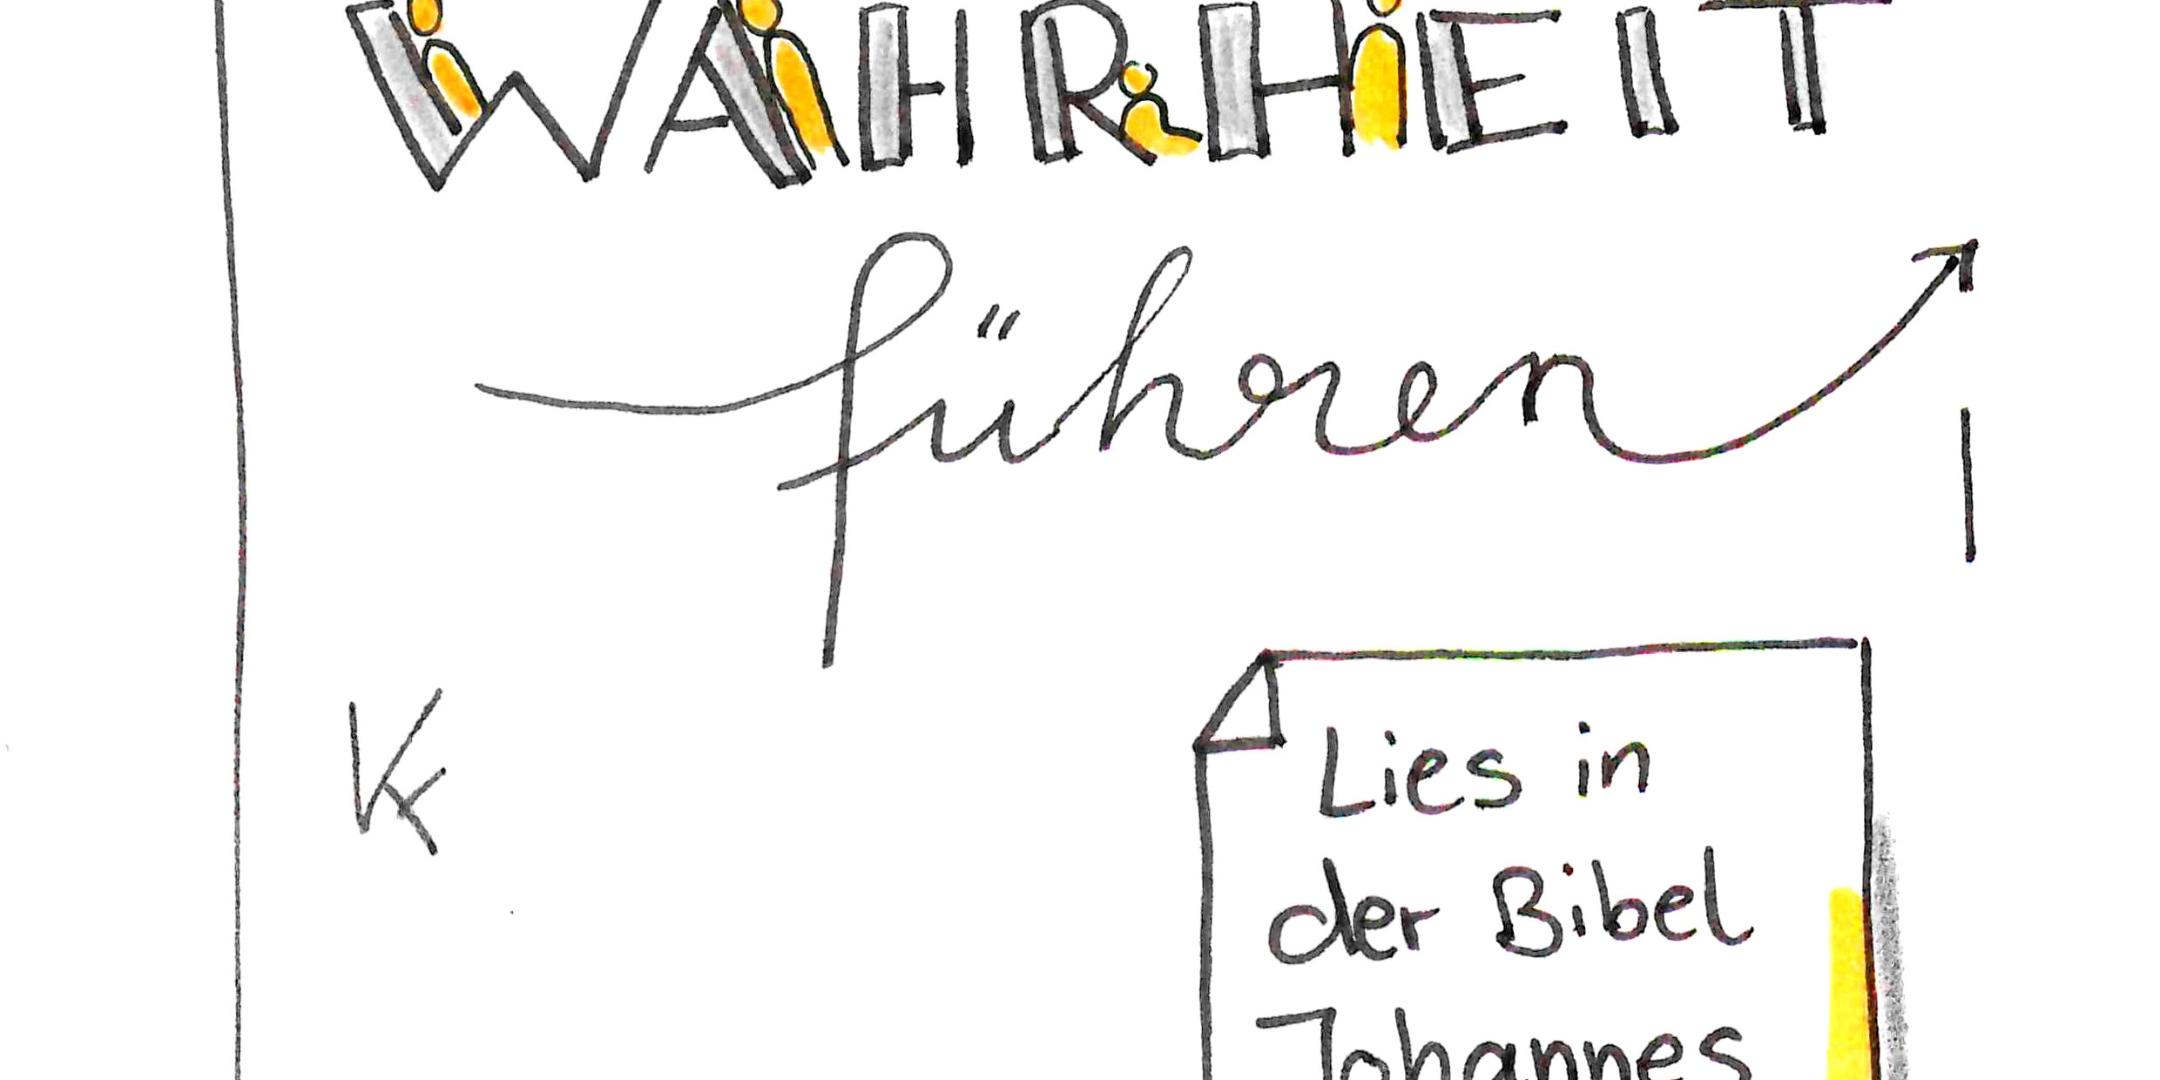 WAHRHEIT
führen
Lies in
der Bibel
Johannes